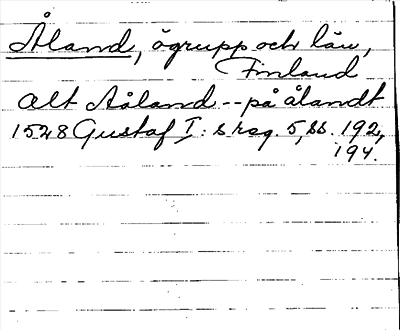 Åland, ögrupp och län,
Finland
alt Aåland -- på ålandt
1528 Gustaf I: s reg. 5, ss. 192,
194.